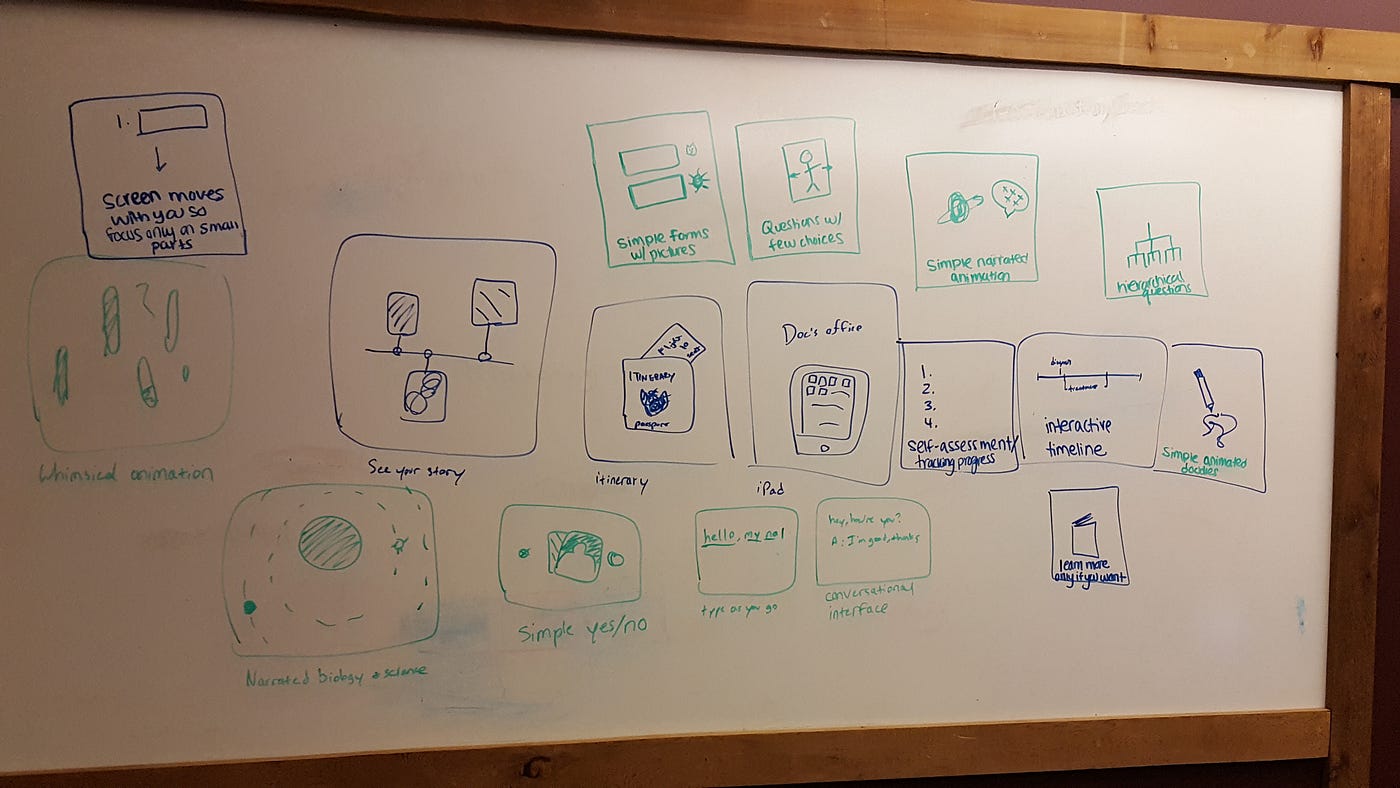 1.
Screen moves
with you so
focus only on small
parts
Simple forms
w/ pictures
Questions w/
few choices
Simple narrated
animation
hierarchical
questions
Whimsical animation
See your story
ITINERARY
passport
itinerary
Doc's office
iPad
1.
2.
3.
4.
self-assessment/
tracking progress
treatment
interactive
timeline
Simple animated
doodles
Narrated biology + science
Simple yes/no
hello, my na|
type as you go
hey, how're you?
A: I'm good, thanks
conversational
interface
learn more
only if you want